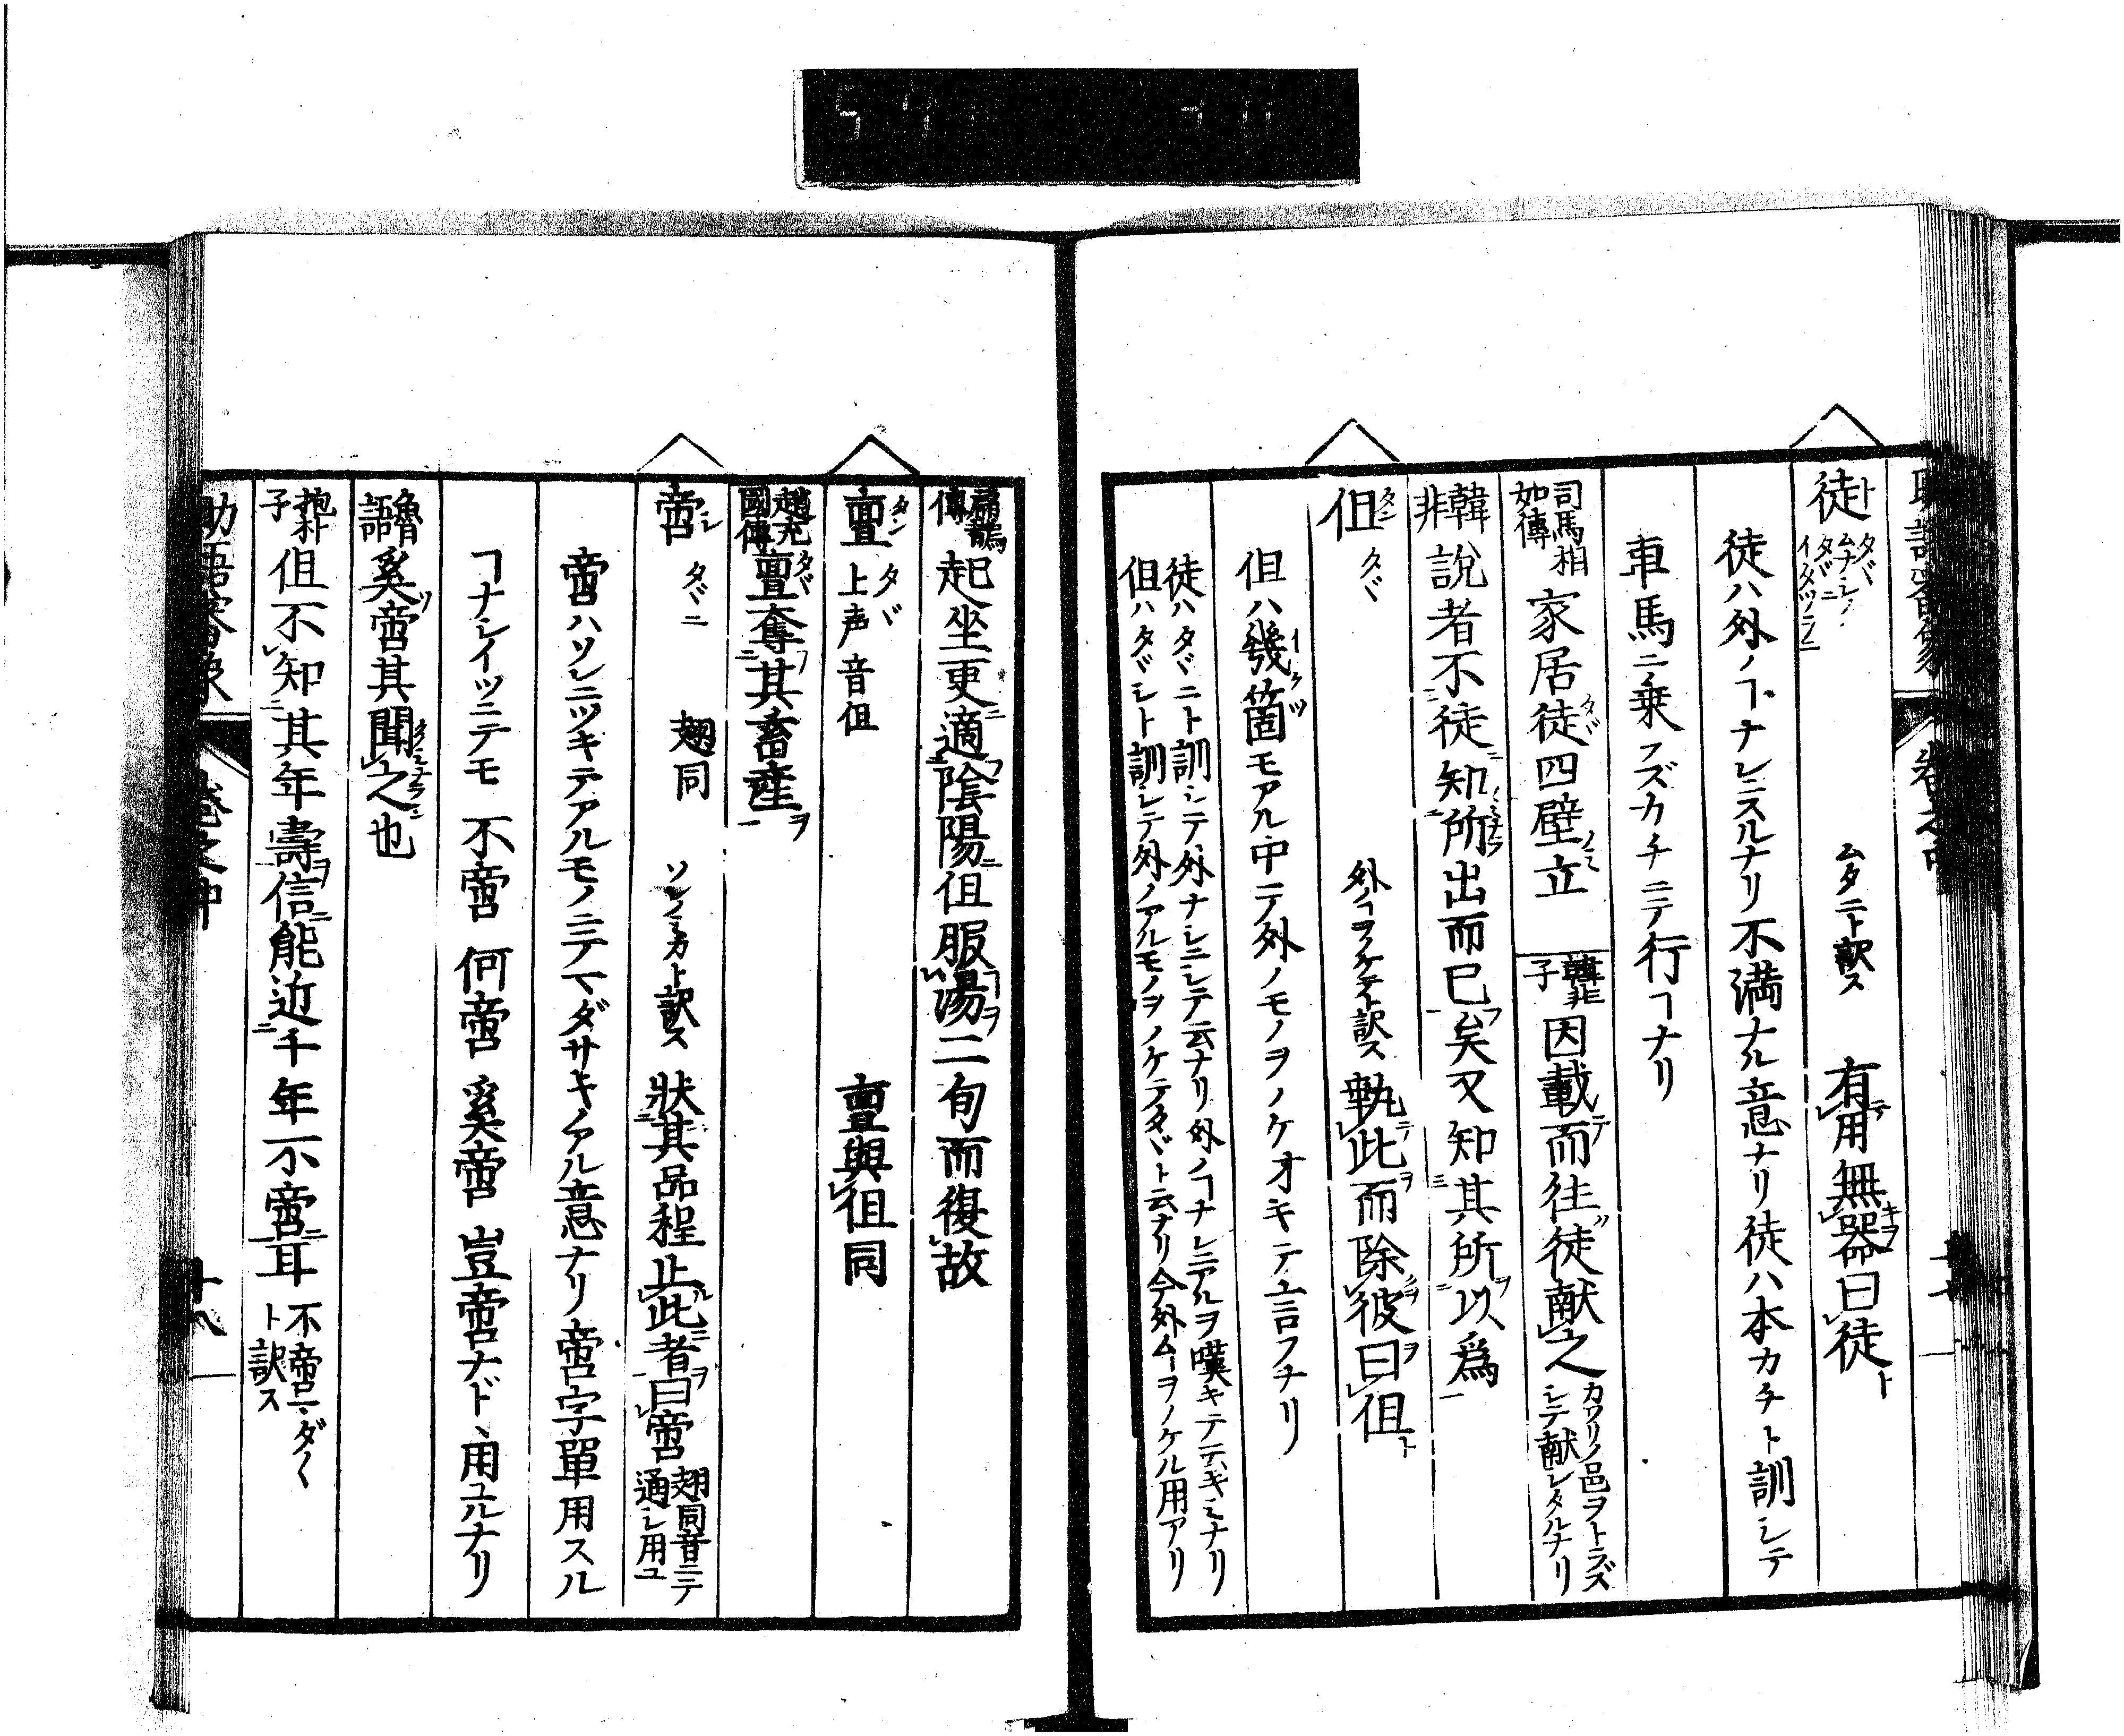 徒 ト タヾ ムナシク タヾニ イタヅラニ ムタニト訳ス 有用無器曰徒
徒ハ外ノヿナシニスルナリ不満ナル意ナリ徒ハ本カチト訓シテ
車馬ニノ乗ラズカチニテ行ヿナリ
司馬相如傳 家居徒四壁立 韓非子 因載而往徒献之 カワリノ邑ヲトラズシテ献シタルナリ
韓非 說者不徒知所出而已矣又知其所以爲
但 タン タヾ 外ノヿヲノケテト訳ス 執此而除彼曰但
但ハ幾箇モアル中ニテ外ノモノヲノケオキテ言フナリ
徒ハタヾニト訓シテ外ナシニシテ云ナリ外ノヿナシニアルヲ嘆キテ云キミナリ
但ハタヾシト訓シテ外ノアルモノヲノケテタヾト云ナリ今外ムヿヲノケル用アリ
扁鵲傳 起坐更適陰陽但服湯二旬而復故
亶 タン タヾ 上声音但 亶與但同
趙充國傳 亶奪其畜産
啻 シ タヾニ 翅同 ソレノミカト訳ス 狀其品程止此者曰啻 翅同音ニテ通シ用ユ
啻ハソレニツキテアルモノニテマダサキノアル意ナリ啻字單用スル
ヿナシイツニテモ 不啻 何啻 奚啻 豈啻ナドヽ用ユルナリ
魯語 奚啻其聞之也
抱朴子 但不知其年壽信能近千年不啻耳 不啻ニマダ〱ト訳ス
助語審象 卷之中 十八